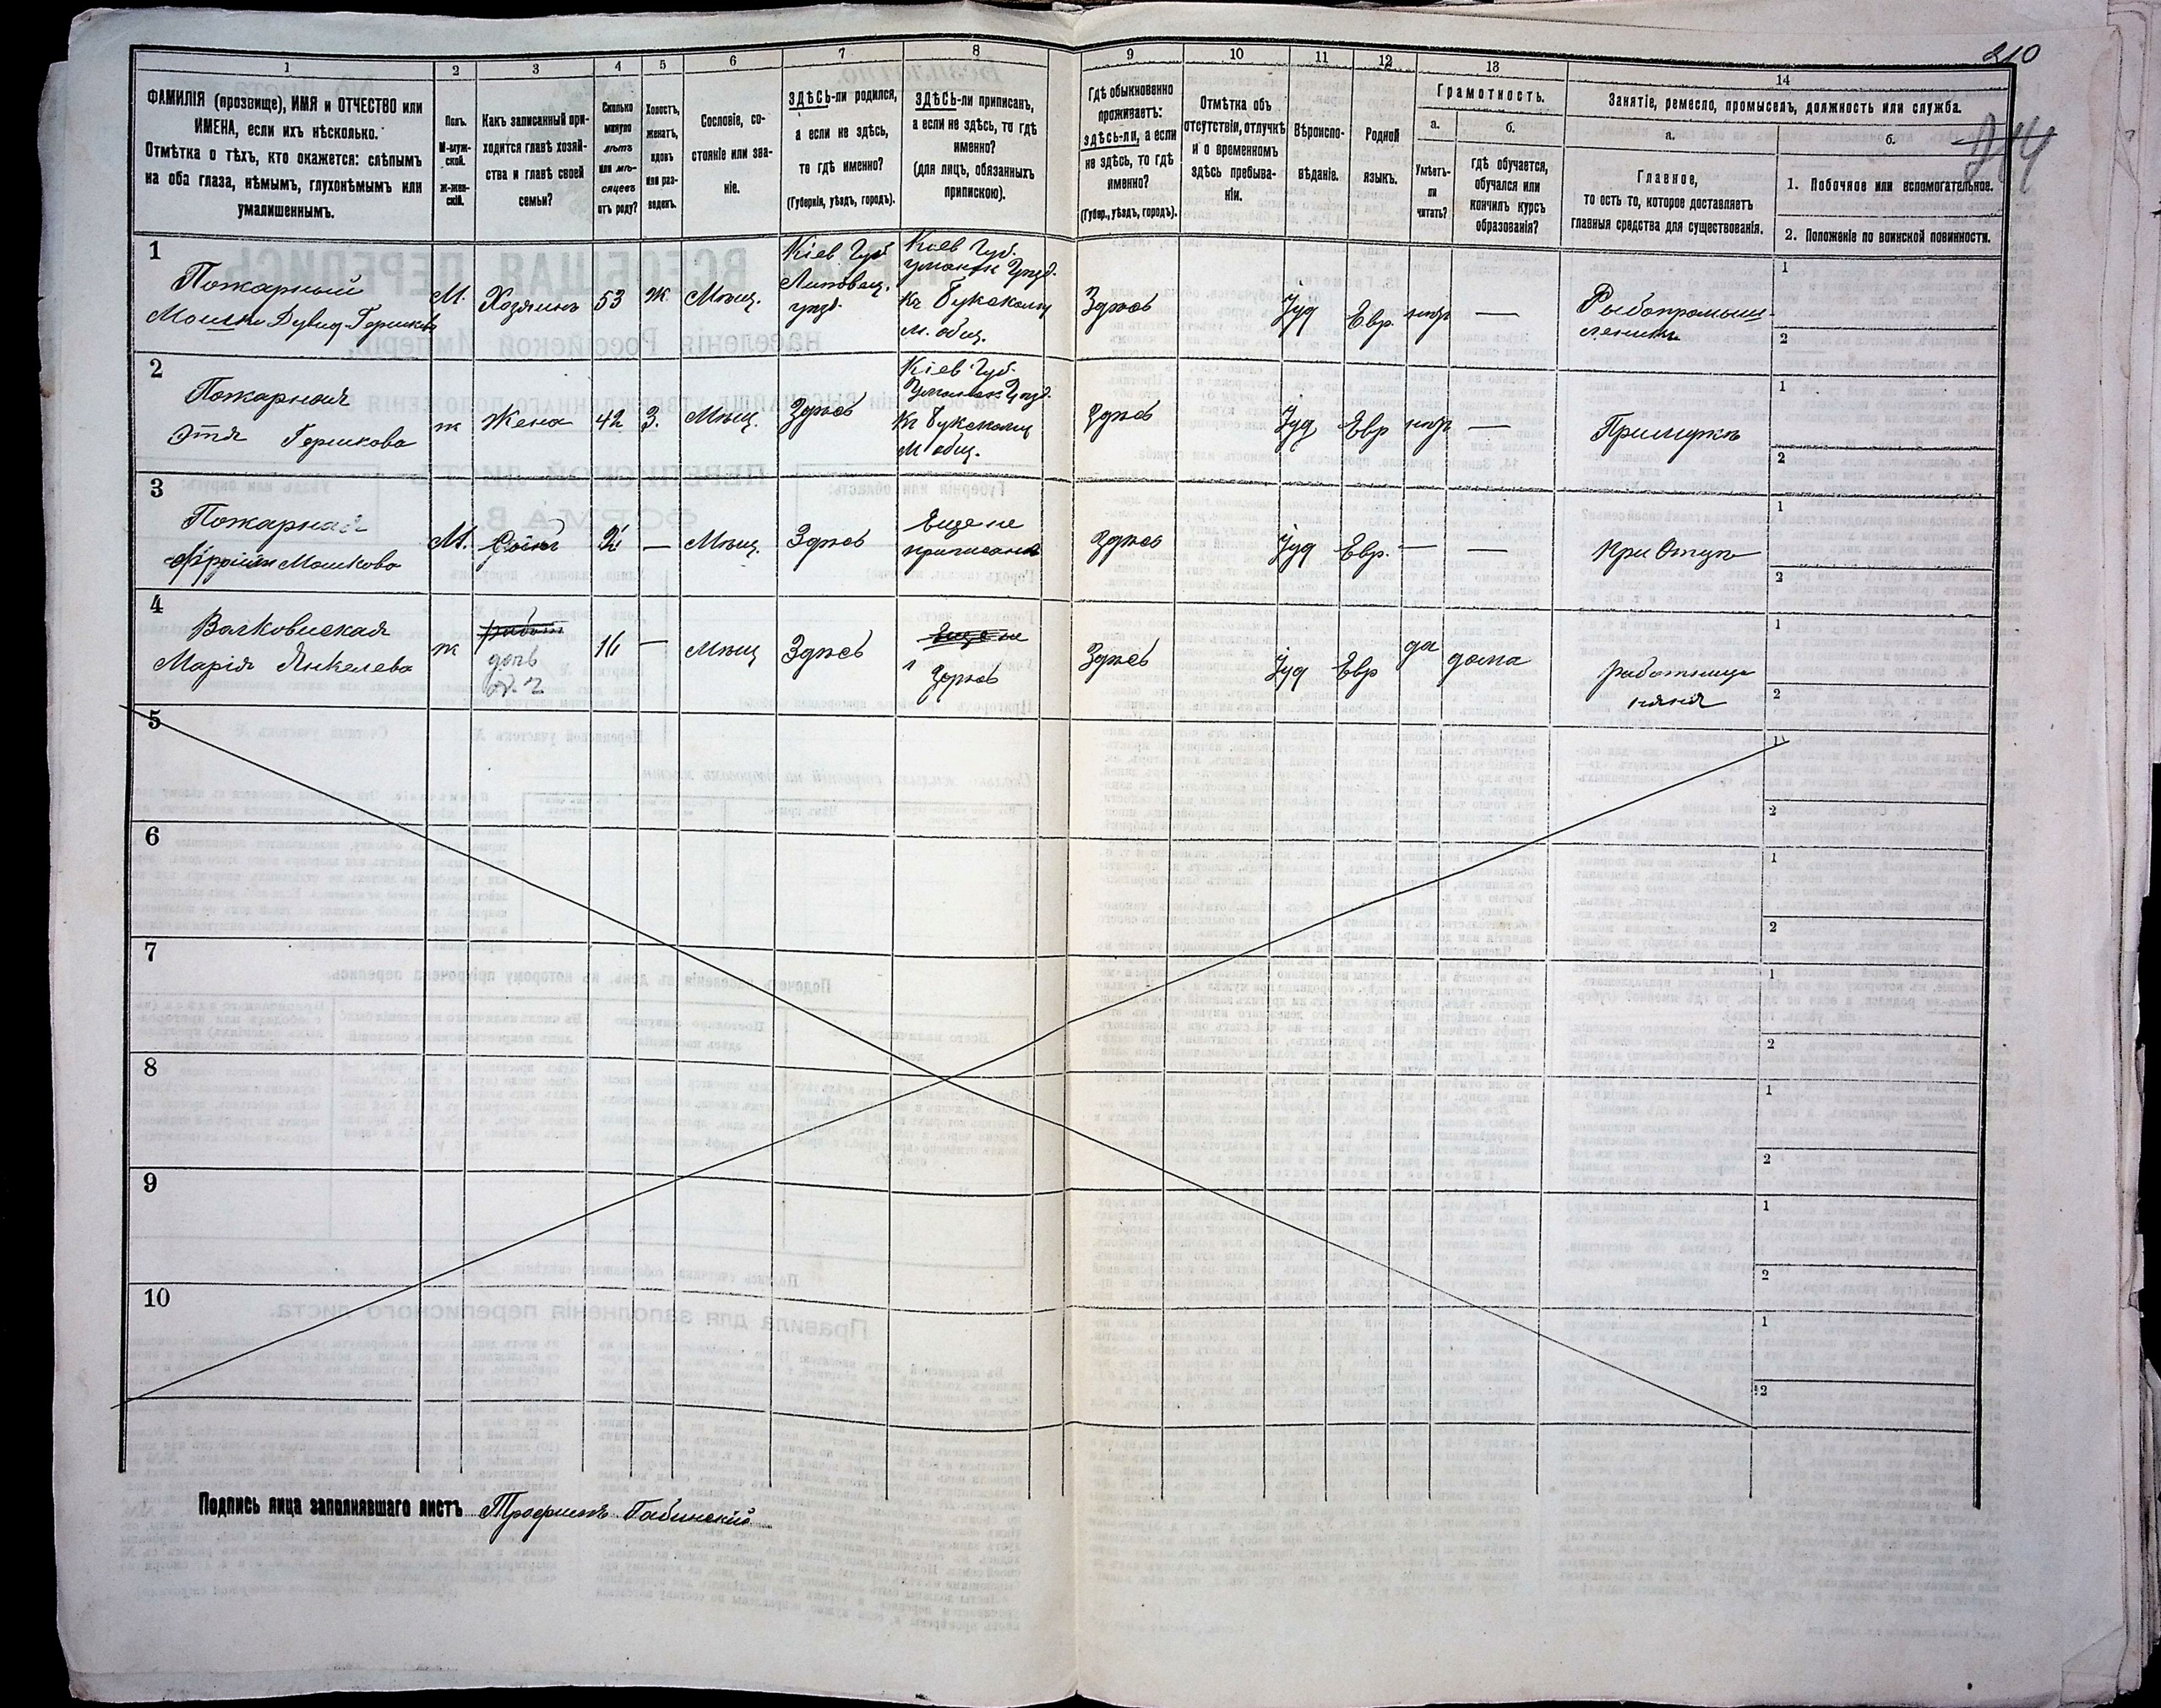 210
214
1 2 3 4 5 6 7 8 9 10 11 12 13 14
ФАМИЛІЯ (прозвище), ИМЯ и ОТЧЕСТВО или
ИМЕНА, если ихъ нѣсколько.
Отмѣтка о тѣхъ, кто окажется: слѣпымъ
на оба глаза, нѣмымъ, глухонѣмымъ или
умалишеннымъ.
Полъ.
М-муж-
ской.
Ж-жен-
скій.
Какъ записанный при-
ходится главѣ хозяй-
ства и главѣ своей
семьи?
Сколько
минуло
лѣтъ
или мѣ-
сяцевъ
отъ роду?
Холостъ,
женатъ,
вдовъ
или раз-
веденъ.
Сословіе, со-
стояніе или зва-
ніе.
ЗДѢСЬ-ли родился,
а если не здѣсь,
то гдѣ именно?
(Губернія, уѣздъ, городъ).
ЗДѢСЬ-ли приписанъ,
а если не здѣсь, то гдѣ
именно?
(для лицъ, обязанныхъ
припискою).
Гдѣ обыкновенно
проживаетъ:
здѣсь-ли, а если
не здѣсь, то гдѣ
именно?
(Губер., уѣздъ, городъ).
Отмѣтка объ
отсутствіи, отлучкѣ
и о временномъ
здѣсь пребыва-
ніи.
Вѣроиспо-
вѣданіе.
Родной
языкъ.
Грамотность.
а.
Умѣетъ-
ли
читать?
б.
гдѣ обучается,
обучался или
кончилъ курсъ
образованія?
Занятіе, ремесло, промыселъ, должность или служба.
а.
Главное,
то есть то, которое доставляетъ
главныя средства для существованія.
б.
1. Побочное или вспомогательное.
2. Положеніе по воинской повинности.
1
Пожарный
Мошко Дувид Гершковъ
М.
Хозяинъ
53
Ж.
Мѣщ.
Кіев Губ
Липовец.
уѣзд.
Кіев Губ.
Уманск Уѣзд.
м. общ.
Здѣсь
Іуд
Евр.
—
Рыбопромыш-
ленникъ
1
2
2
Пожарная
Этя Гершкова
ж
Жена
42
З.
Мѣщ.
Здѣсь
Кіев Губ.
Уманск Уѣзд.
м общ.
Здѣсь
Іуд
Евр
—
При мужѣ
1
2
3
Пожарная
Мошкова
М.
2
—
Мѣщ.
Здѣсь
Еще не
приписанъ
Здѣсь
Іуд
Евр.
—
—
При Отцѣ
1
2
4
Марія Янкелева
ж
дочь
16
—
Мѣщ
Здѣсь
Еще не
Здѣсь
Здѣсь
Іуд
Евр
да
дома
работница
няня
1
2
5
1
2
6
1
2
7
1
2
8
1
2
9
1
2
10
1
2
Подпись лица заполнявшаго листъ Трофимъ Габинскій